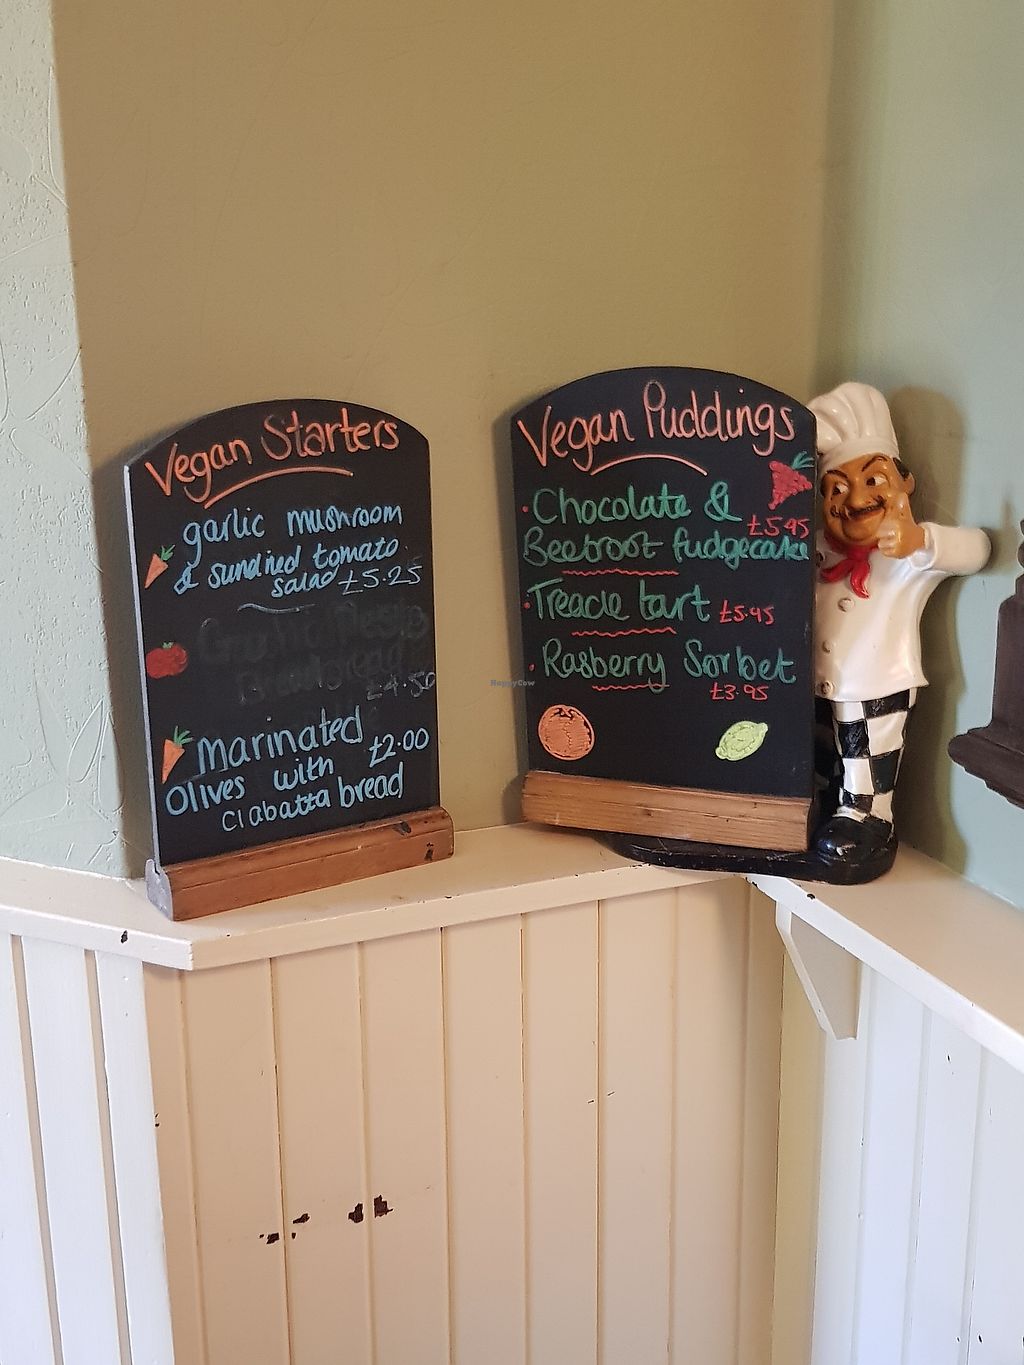 Vegan Starters
garlic mushroom
& sundried tomato
salad £5.25
Garlic Pesto
£4.50
Marinated
£2.00
Olives with
Ciabatta bread
Vegan Puddings
Chocolate &
£5.95
Beetroot fudgecake
Treacle tart £5.95
Rasberry Sorbet
£3.95
HappyCow